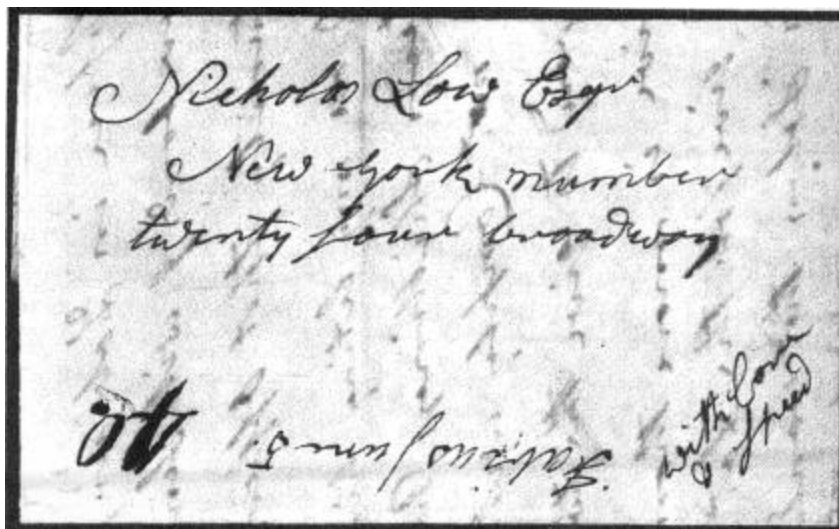 Nicholas Low Esqr
New york number
twenty four broadway
with Care
& Speed
Fabius June 5